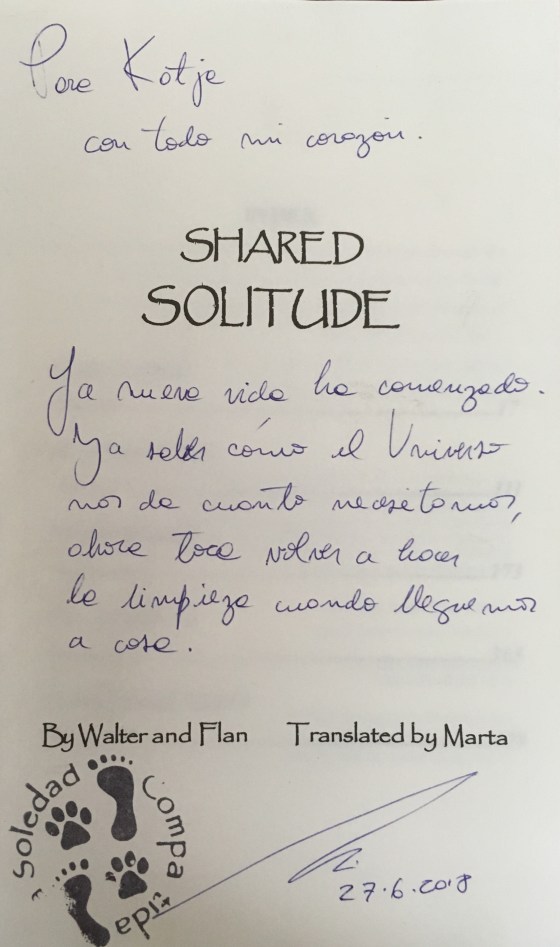 Para Kotje
con todo mi corazón.
SHARED
SOLITUDE
Ya nueva vida ha comenzado.
Ya sabes cómo el Universo
nos da cuanto necesitamos,
ahora toca volver a hacer
la limpieza cuando lleguemos
a casa.
By Walter and Flan Translated by Marta
Soledad Compartida
27.6.2018